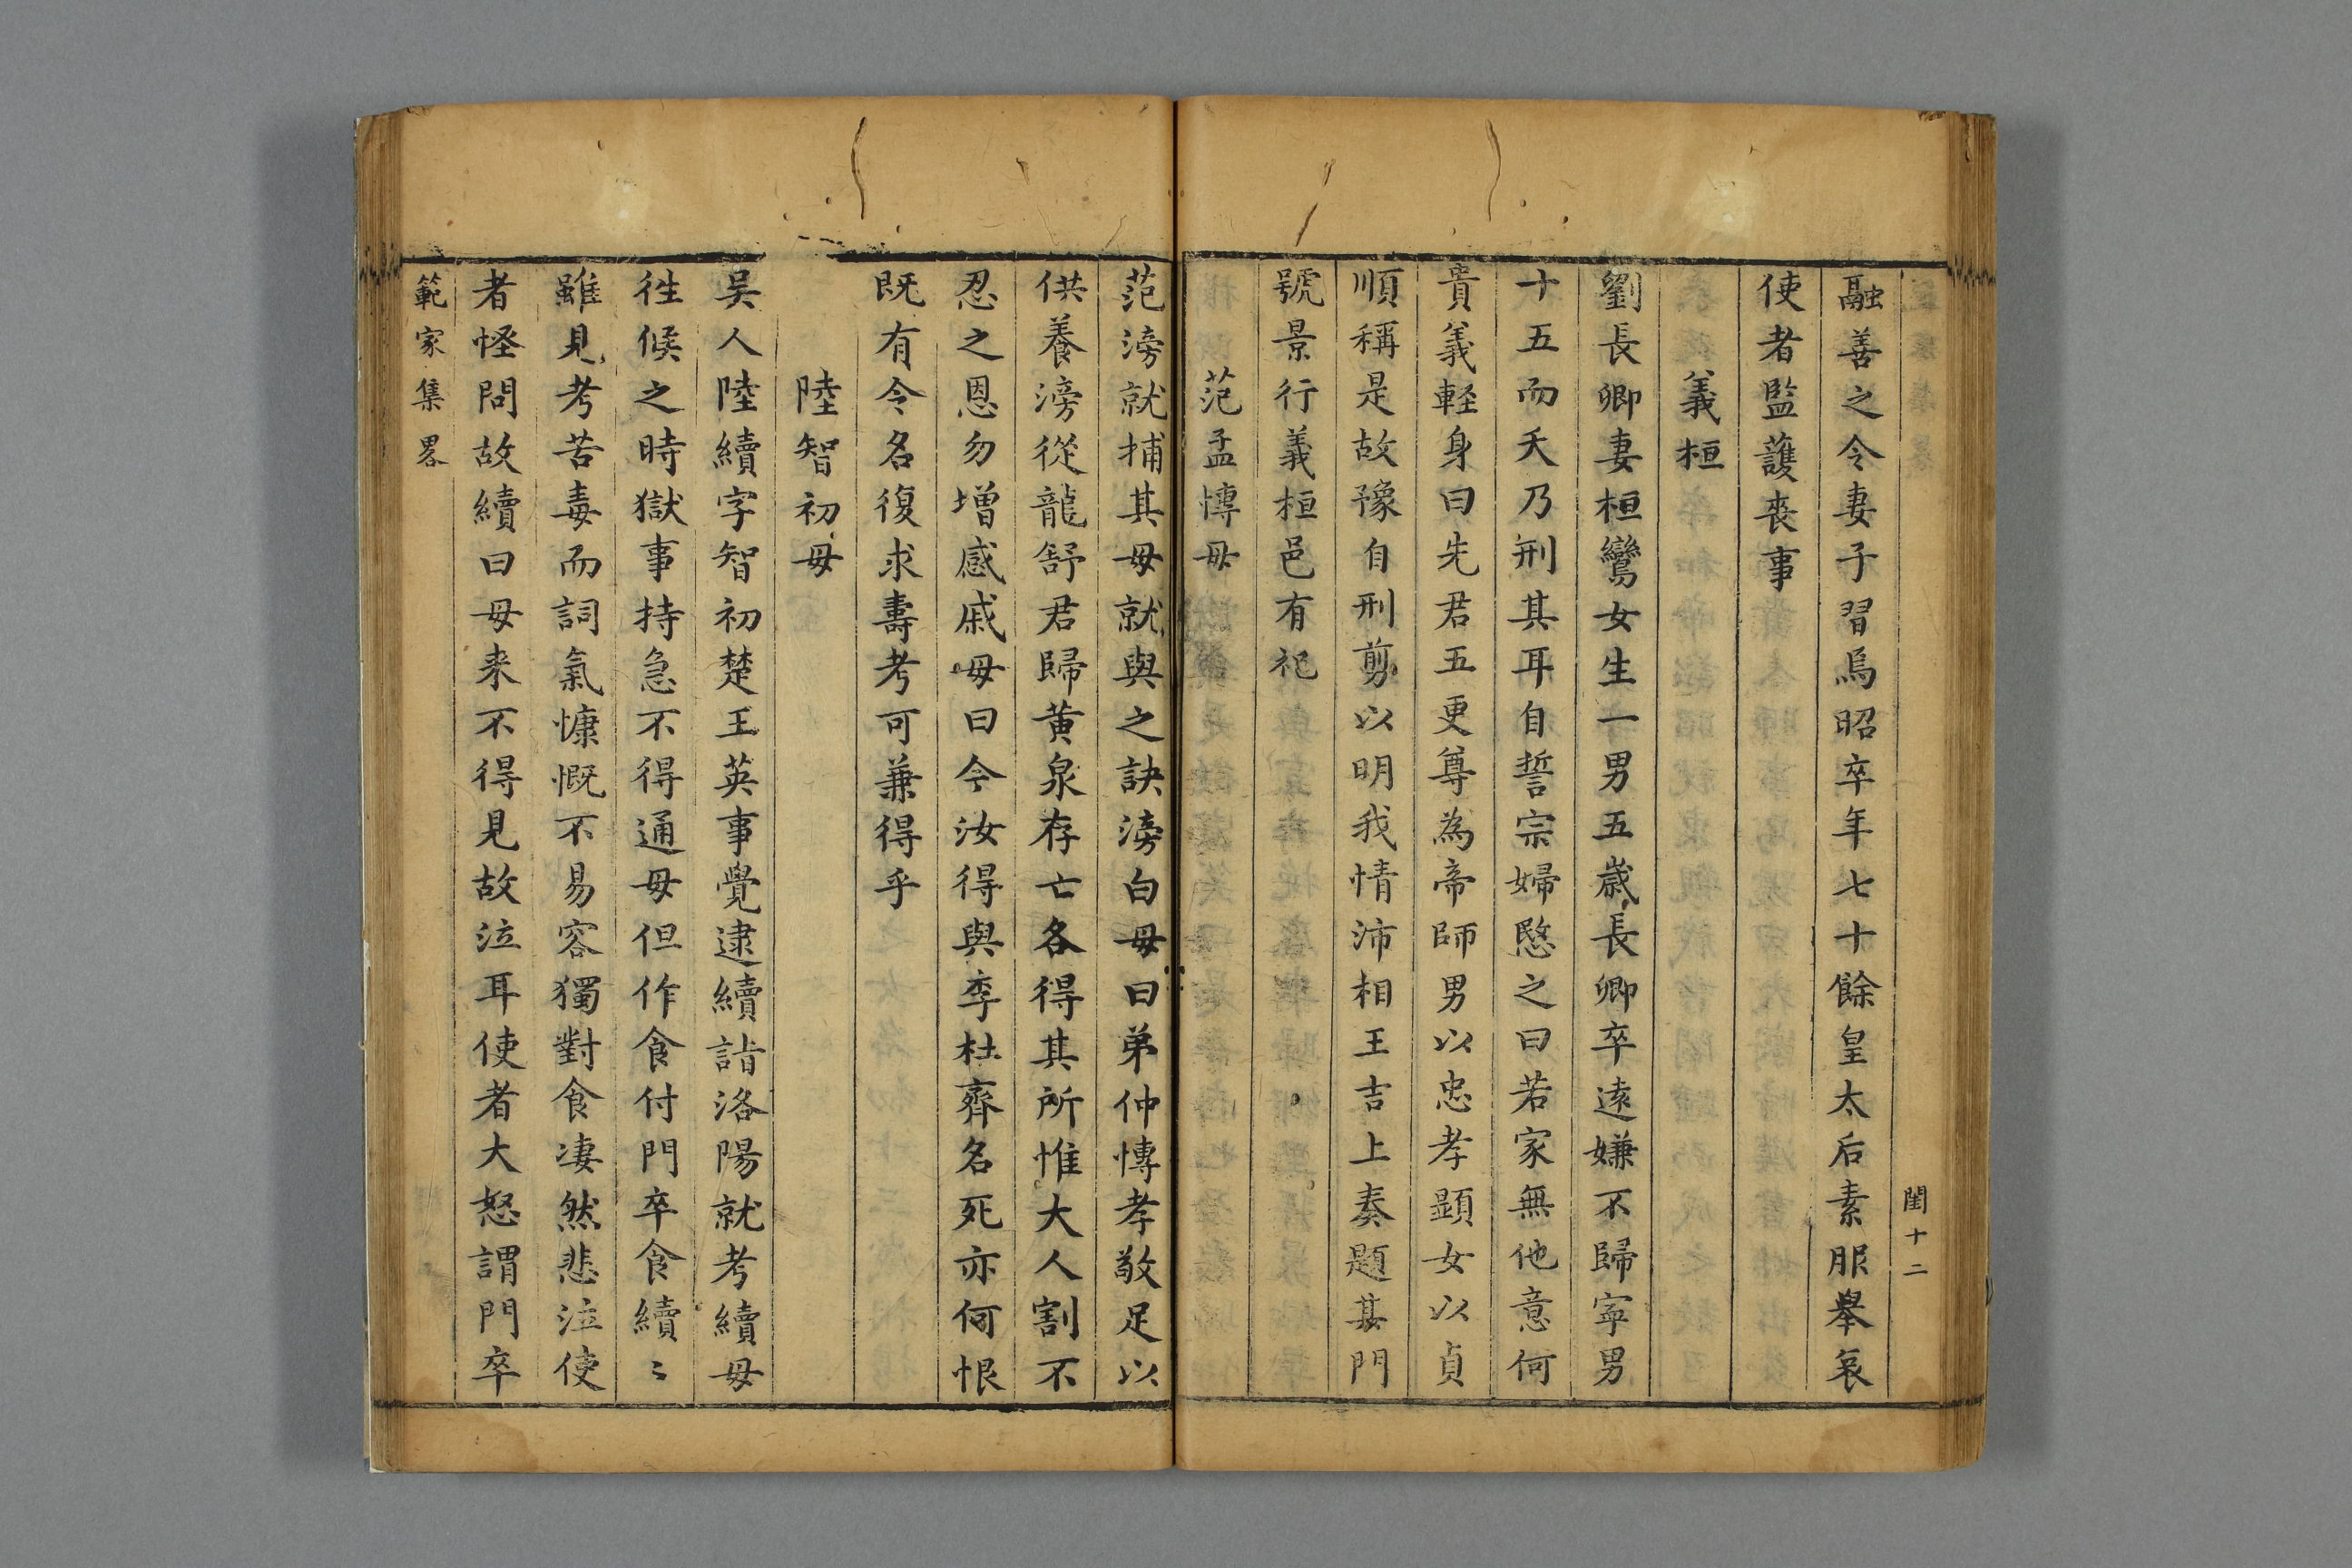 閨十二
融善之令妻子習焉昭卒年七十餘皇太后素服舉哀
使者監護喪事
義桓
劉長卿妻桓鸞女生一男五歲長卿卒遠嫌不歸寧男
十五而夭乃刑其耳自誓宗婦愍之曰若家無他意何
貴義輕身曰先君五更尊為帝師男以忠孝顯女以貞
順稱是故豫自刑剪以明我情沛相王吉上奏題其門
號景行義桓邑有祀
范孟慱母
范滂就捕其母就與之訣滂白母曰弟仲慱孝敬足以
供養滂從龍舒君歸黃泉存亡各得其所惟大人割不
忍之恩勿增感戚母曰今汝得與李杜齊名死亦何恨
既有令名復求壽考可兼得乎
陸智初母
吴人陸續字智初楚王英事覺逮續詣洛陽就考續母
徃候之時獄事持急不得通母但作食付門卒食續〻
雖見考苦毒而詞氣慷慨不易容獨對食凄然悲泣使
者怪問故續曰母来不得見故泣耳使者大怒謂門卒
範家集畧